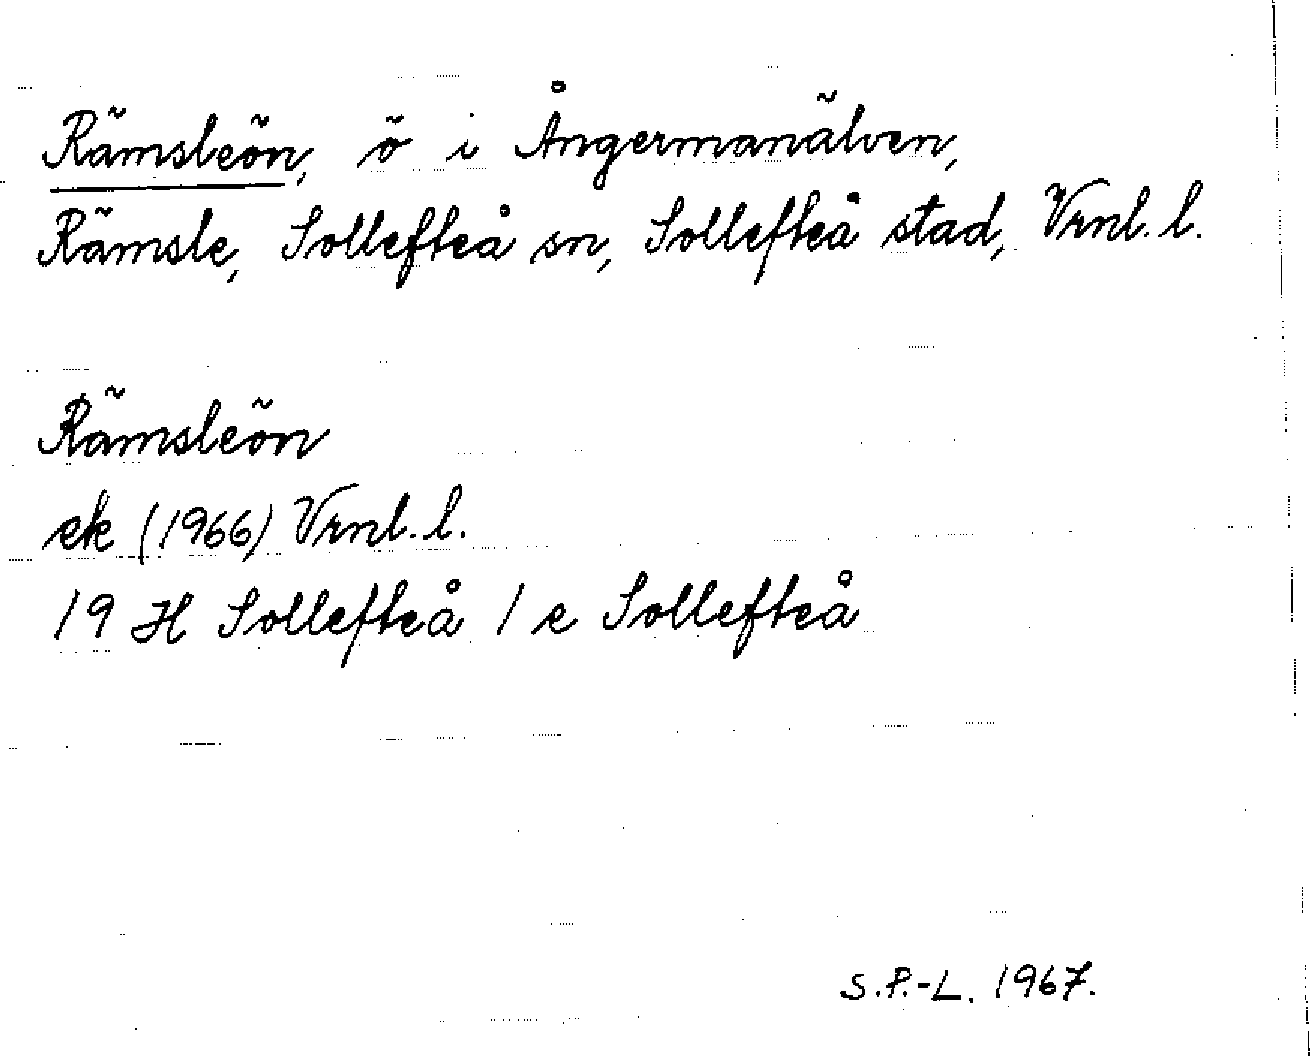 Rämsleön, ö i Ångermanälven,
Rämsle, Sollefteå sn, Sollefteå stad, Vrnl. l.
Rämsleön
ek (1966) Vrnl. l.
19 H Sollefteå 1 e Sollefteå
S.P.-L. 1967.